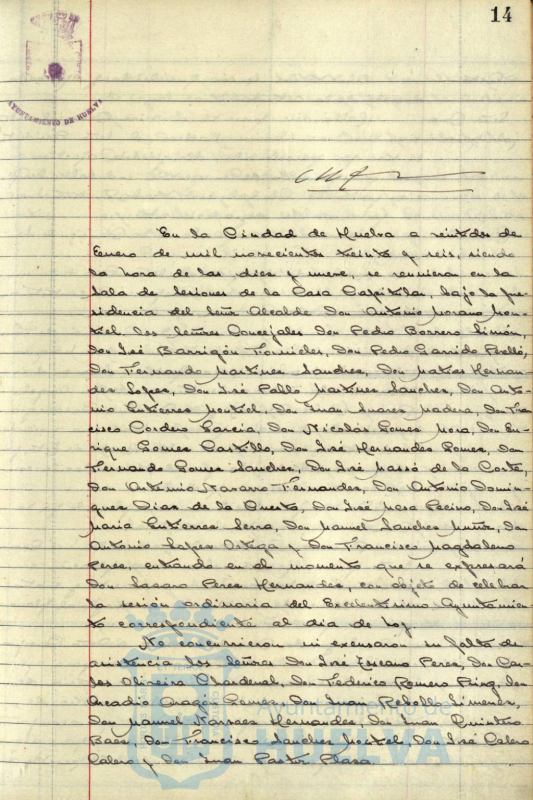 14
AYUNTAMIENTO DE HUELVA
En la Ciudad de Huelva a veintidos de
Enero de mil novecientos treinta y seis, siendo
la hora de las diez y nueve, se reunieron en la
Sala de Sesiones de la Casa Capitular, bajo la pre-
sidencia del Señor Alcalde Don Antonio Moreno Mar-
los Señores Concejales Don Pedro Borrero Limón,
Don José Barrigón Fornieles, Don Pedro Garrido Perelló,
Don Fernando Martinez Sanchez, Don Matias Hernan-
dez Lopez, Don José Pablo Martinez Sanchez, Don Anto-
nio Gutierrez Montiel, Don Juan Suarez Madera, Don Fran-
cisco Cordero Garcia, Don Nicolás Gomez Mora, Don En-
rique Gomez Castillo, Don José Hernandez Gomez, Don
Fernando Gomez Sanchez, Don José Massó de la Corte,
Don Antonio Navarro Fernandez, Don Antonio Domin-
guez Diaz de la Don José Mesa Pecino, Don José
Maria Gutierrez Serra, Don Manuel Sanchez Muñoz, Don
Antonio Lopez Ortega y Don Francisco Magdaleno
Perez, entrando en el momento que se expresará
Don Lazaro Perez Hernandez, con objeto de celebrar
la sesión ordinaria del Excelentísimo Ayuntamien-
to correspondiente al dia de hoy
No concurrieron ni excusaron su falta de
asistencia los señores Don José Perez, Don Car-
los Oliveira Chardenal, Don Federico Romero Don
Arcadio Aragón Gomez, Don Juan Rebollo Jimenez,
Don Manuel Narvaez Hernandez, Don Juan Quintero
Baez, Don Francisco Sanchez Montiel, Don José Calero
Calero y Don Juan Pastor Plaza.
Ayuntamiento de
HUELVA